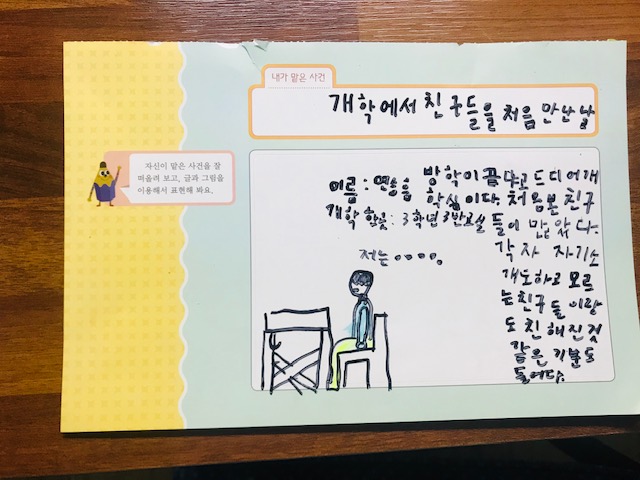 내가 맡은 사건
개학에서 친구들을 처음 만난 날
자신이 맡은 사건을 잘
떠올려 보고, 글과 그림을
이용해서 표현해 봐요.
이름: 연승흠
개학 한곳: 3학년 3반교실
방학이 끝나고 드디어 개
학식이다. 처음본 친구
들이 많았다.
각자 자기소
개도하고 모르
는친구들이랑
도 친해진것
같은 기분도
들어다.
저는....